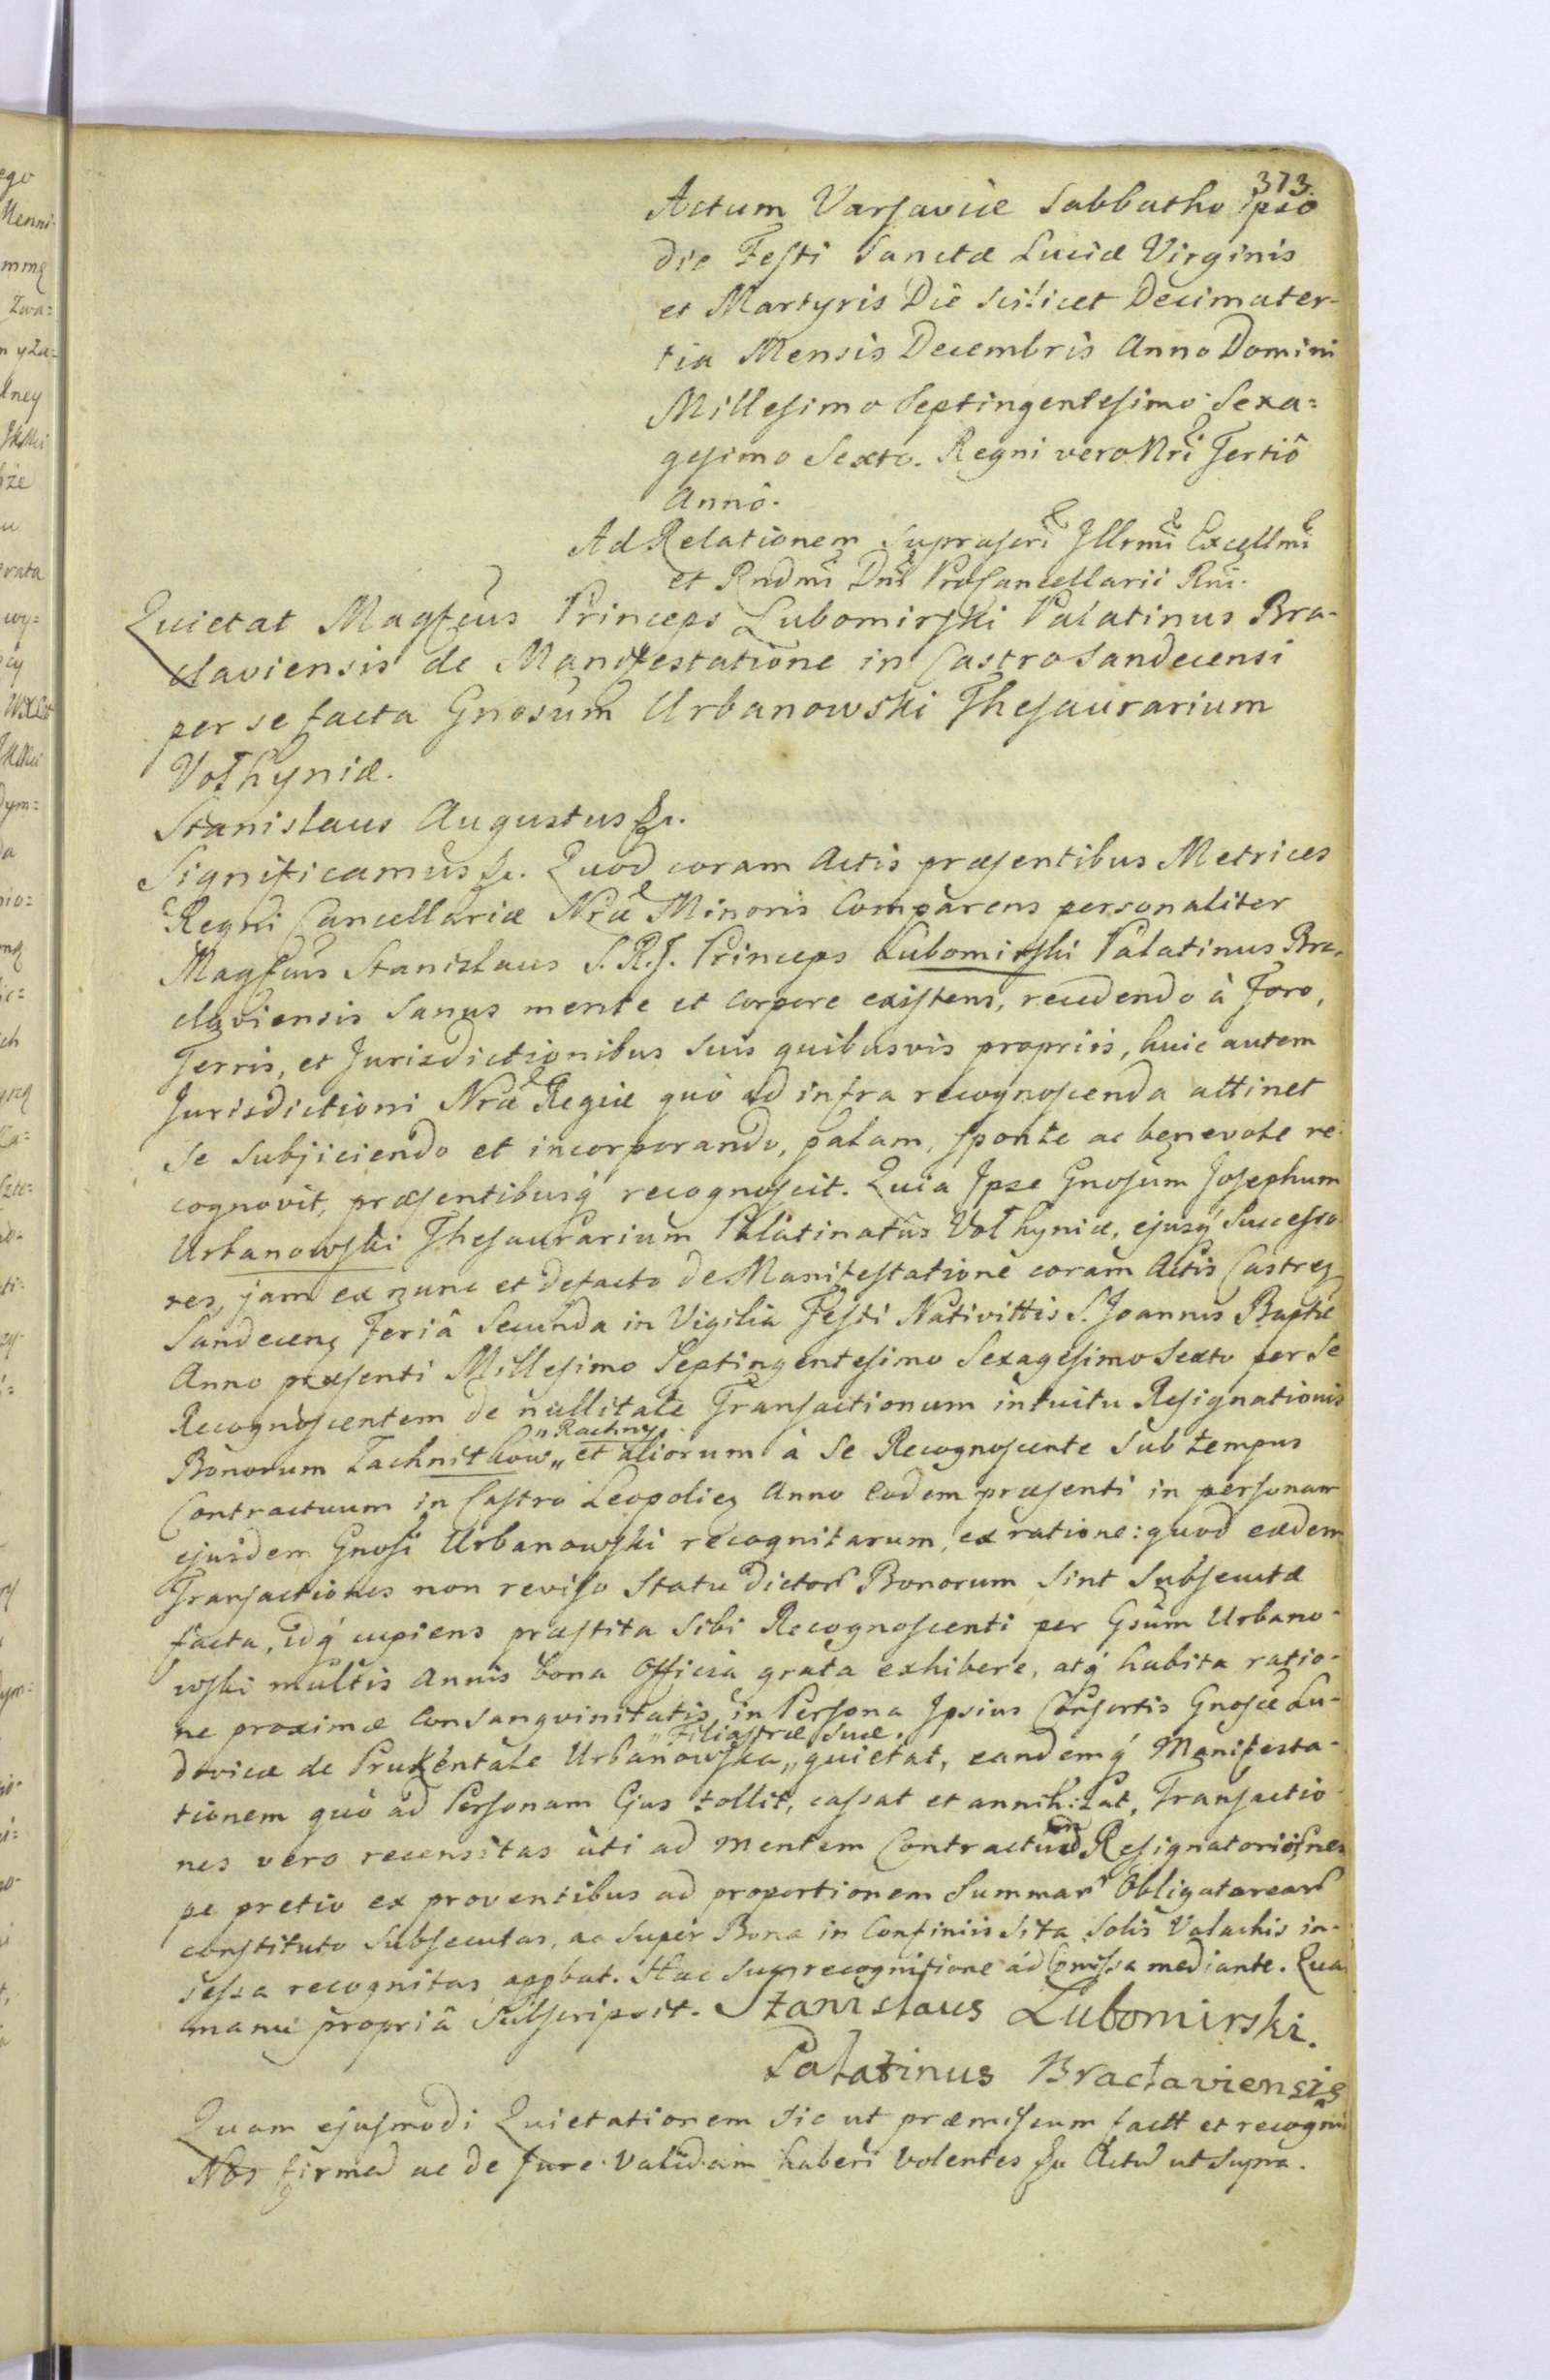 373.
Actum Varsaviæ Sabbatho ipso
die Festi Sanctæ Luciæ Virginis
et Martyris Die scilicet Decimater-
tia Mensis Decembris Anno Domini
Millesimo Septingentesimo Sexa=
gesimo Sexto. Regni vero Nri Tertiô
Annô.
Ad Relationem Suprascri Jllrmi Excellmi
et Rndmi Dni ProCancellarii Rni.
Quietat Magfcus Princeps Lubomirski Palatinus Bra-
claviensis de Manifestatione in Castro Sandecensi
per se facta Gnosum Urbanowski Thesaurarium
Volhyniæ.
Stanislaus Augustus &c.
Significamus &c. Quod coram Actis præsentibus Metrices
Regni Cancellariæ Nræ Minoris Comparens personaliter
Magfcus Stanislaus S. R. J. Princeps Lubomirski Palatinus Bra-
claviensis Sanus mente et Corpore existens, recedendo à Foro,
Terris, et Jurisdictionibus Suis quibusvis propriis, huic autem
Jurisdictioni Nræ Regiæ quò ad infra recognoscenda attinet
Se Subjiciendo et incorporando, palam, sponte ac benevole re-
cognovit, præsentibusq́ recognoscit. Quia Jpse Gnosum Josephum
Urbanowski Thesaurarium Palatinatûs Volhyniæ, ejusq́ Successo-
res, jam ex nunc et defacto de Manifestatione coram Actis Castren
Sandecen Feriâ Secunda in Vigilia Festi Nativittis S. Joannis Baptæ
Anno præsenti Millesimo Septingentesimo Sexagesimo Sexto per Se
Recognoscentem de nullitate Transactionum intuitu Resignationis
„Rachny„
Bonorum Lachnitkow„ et aliorum à Se Recognoscente Sub tempus
Contractuum in Castro Leopolien Anno Eodem præsenti in personam
ejusdem Gnosi Urbanowski recognitarum, ex ratione: quod eædem
Transactiones non reviso Statu dictor Bonorum Sint Subsecutæ
facta, idq́ cupiens præstita Sibi Recognoscenti per Gsum Urbano-
wski multis Annis bona Officia grata exhibere, atq́ habita ratio-
ne proximæ Consangvinitatis in Persona Jpsius Consortis Gnosæ Lu-
„Filiastræ Suæ„
dovicæ de Pruszentale Urbanowska„ quietat, eandemq́ Manifesta-
tionem quò ad Personam Ejus tollit, cassat et annihilat, Transactio-
nes vero recensitas uti ad mentem Contractus Resignatorii, nem
pe pretio ex proventibus ad proportionem Summar Obligatorear
constituto Subsecutas, ac Super Bona in Confiniis Sita Solis Valachis in-
sessa recognitas appbat. Hac Sua recognitione ad pmissa mediante. Qua
manu propriâ Subscripsit. Stanislaus Lubomirski.
Palatinus Braclaviensis
Quam ejusmodi Quietationem Sic ut præmissum factt et recogni
Nos firmā ac de Jure Validam haberi volentes &c Actū ut Supra.